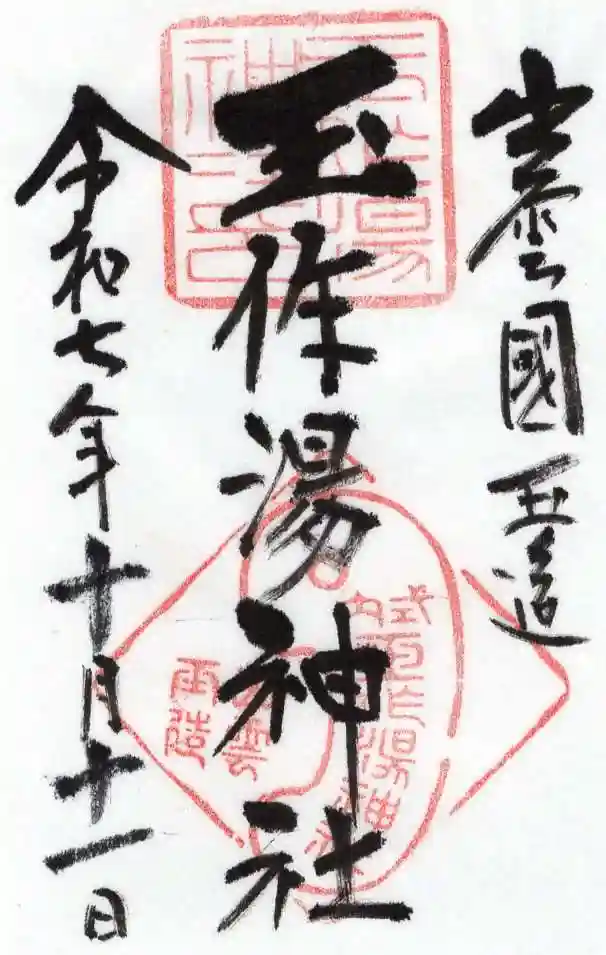 出雲國玉造
玉作湯神社
令和七年十月十一日
式内玉作湯神社
出雲
玉造